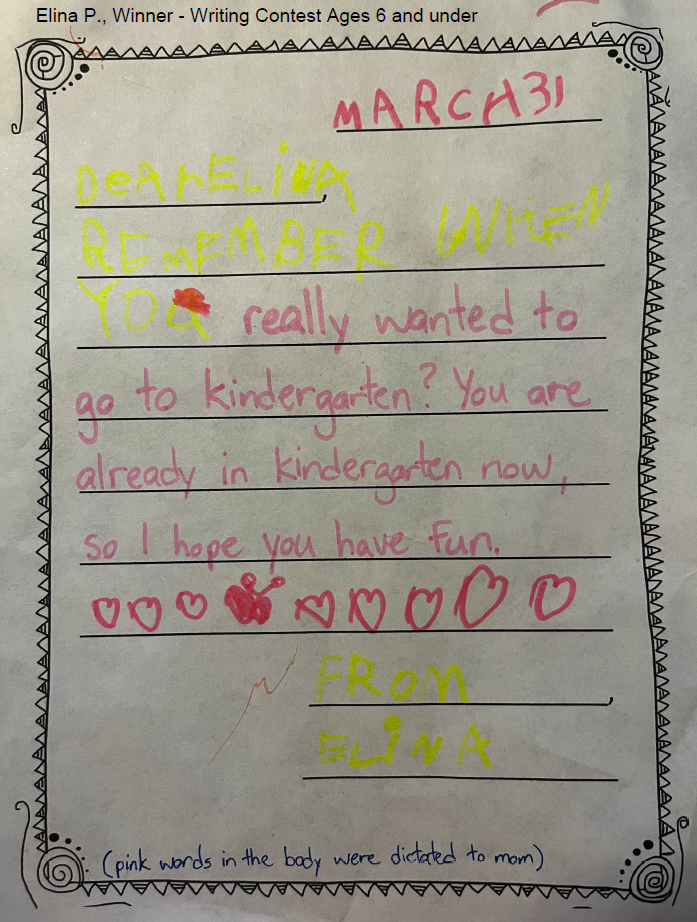 Elina P., Winner - Writing Contest Ages 6 and under
MARCH 31
DeArELiNA,
REMEMBER WHEN
YOU really wanted to
go to kindergarten? You are
already in kindergarten now,
so I hope you have fun.
FROM,
ELiNA
(pink words in the body were dictated to mom)